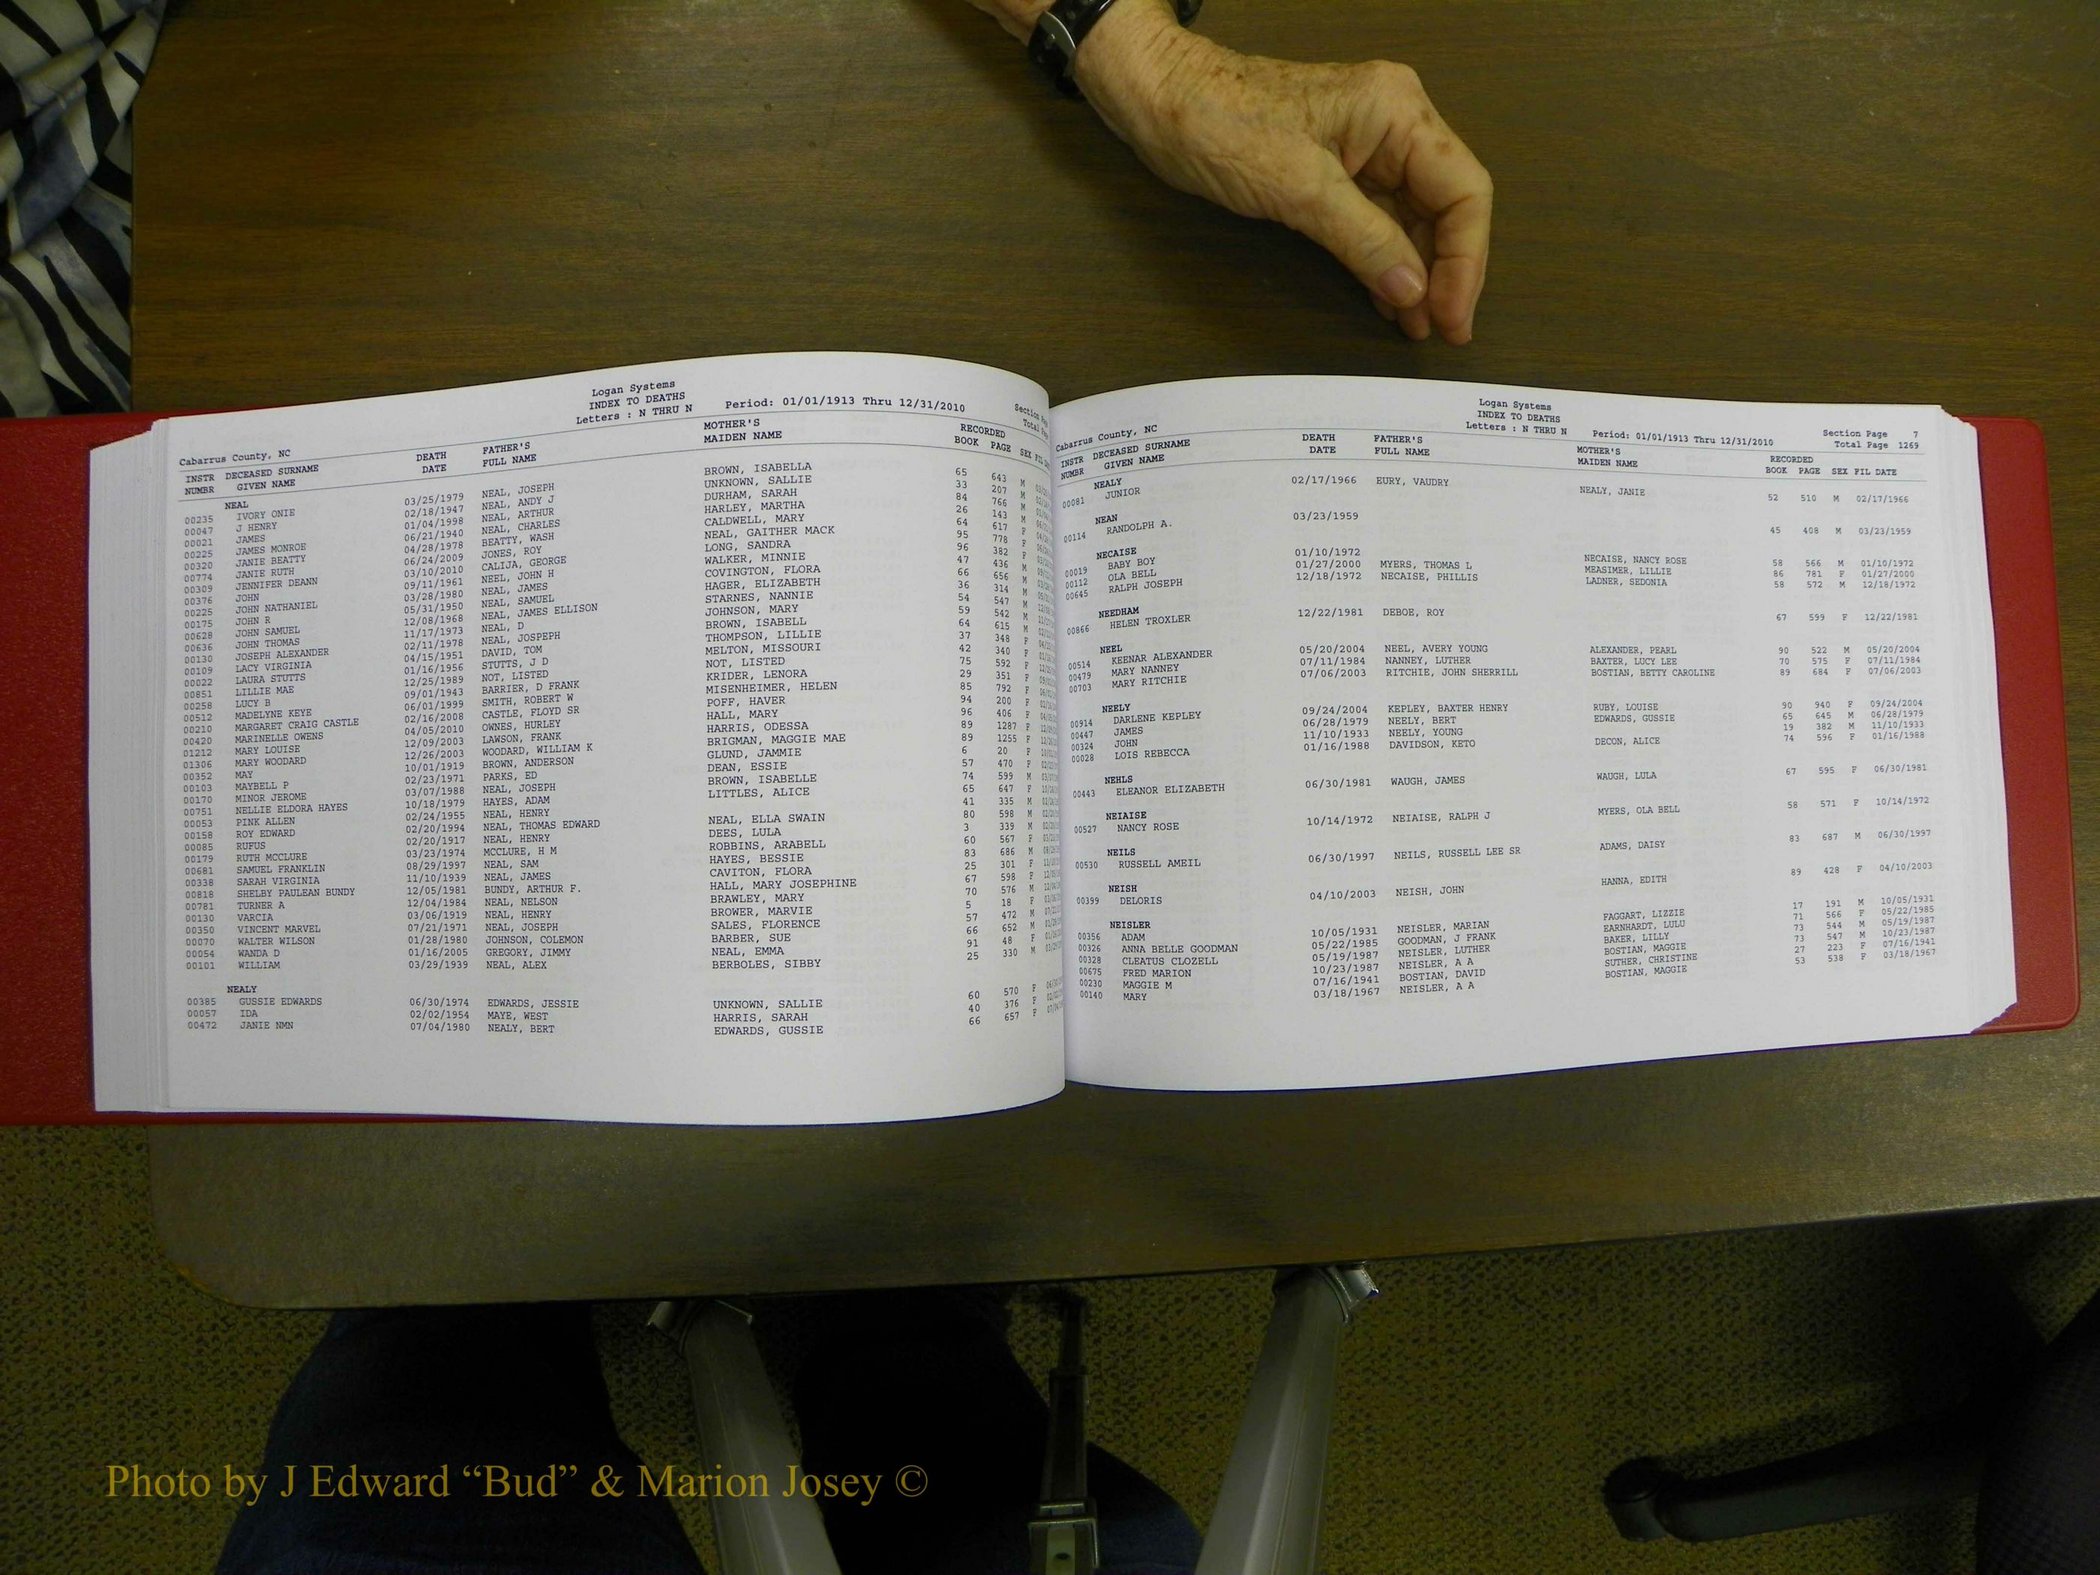 Logan Systems
INDEX TO DEATHS
Letters : N THRU N Period: 01/01/1913 Thru 12/31/2010
Cabarrus County, NC
INSTR NUMBR DECEASED SURNAME GIVEN NAME DEATH DATE FATHER'S FULL NAME MOTHER'S MAIDEN NAME RECORDED BOOK PAGE SEX
NEAL
00235 IVORY ONIE 03/25/1979 NEAL, JOSEPH BROWN, ISABELLA 65 643 M
00047 J HENRY 02/18/1947 NEAL, ANDY J UNKNOWN, SALLIE 33 207 M
00021 JAMES 01/04/1998 NEAL, ARTHUR DURHAM, SARAH 84 766 M
00225 JAMES MONROE 06/21/1940 NEAL, CHARLES HARLEY, MARTHA 26 143 M
00320 JANIE BEATTY 04/28/1978 BEATTY, WASH CALDWELL, MARY 64 617 F
00774 JANIE RUTH 06/24/2009 JONES, ROY NEAL, GAITHER MACK 95 778 F
00309 JENNIFER DEANN 03/10/2010 CALIJA, GEORGE LONG, SANDRA 96 382 F
00376 JOHN 09/11/1961 NEEL, JOHN H WALKER, MINNIE 47 436 M
00225 JOHN NATHANIEL 03/28/1980 NEAL, JAMES COVINGTON, FLORA 66 656 M
00175 JOHN R 05/31/1950 NEAL, SAMUEL HAGER, ELIZABETH 36 314 M
00628 JOHN SAMUEL 12/08/1968 NEAL, JAMES ELLISON STARNES, NANNIE 54 547 M
00636 JOHN THOMAS 11/17/1973 NEAL, D JOHNSON, MARY 59 542 M
00130 JOSEPH ALEXANDER 02/11/1978 NEAL, JOSPEPH BROWN, ISABELL 64 615 M
00109 LACY VIRGINIA 04/15/1951 DAVID, TOM THOMPSON, LILLIE 37 348 F
00022 LAURA STUTTS 01/16/1956 STUTTS, J D MELTON, MISSOURI 42 340 F
00851 LILLIE MAE 12/25/1989 NOT, LISTED NOT, LISTED 75 592 F
00258 LUCY B 09/01/1943 BARRIER, D FRANK KRIDER, LENORA 29 351 F
00512 MADELYNE KEYE 06/01/1999 SMITH, ROBERT W MISENHEIMER, HELEN 85 792 F
00210 MARGARET CRAIG CASTLE 02/16/2008 CASTLE, FLOYD SR POFF, HAVER 94 200 F
00420 MARINELLE OWENS 04/05/2010 OWNES, HURLEY HALL, MARY 96 406 F
01212 MARY LOUISE 12/09/2003 LAWSON, FRANK HARRIS, ODESSA 89 1287 F
01306 MARY WOODARD 12/26/2003 WOODARD, WILLIAM K BRIGMAN, MAGGIE MAE 89 1255 F
00352 MAY 10/01/1919 BROWN, ANDERSON GLUND, JAMMIE 6 20 F
00103 MAYBELL P 02/23/1971 PARKS, ED DEAN, ESSIE 57 470 F
00170 MINOR JEROME 03/07/1988 NEAL, JOSEPH BROWN, ISABELLE 74 599 M
00751 NELLIE ELDORA HAYES 10/18/1979 HAYES, ADAM LITTLES, ALICE 65 647 F
00053 PINK ALLEN 02/24/1955 NEAL, HENRY 41 335 M
00158 ROY EDWARD 02/20/1994 NEAL, THOMAS EDWARD NEAL, ELLA SWAIN 80 598 M
00085 RUFUS 02/20/1917 NEAL, HENRY DEES, LULA 3 339 M
00179 RUTH MCCLURE 03/23/1974 MCCLURE, H M ROBBINS, ARABELL 60 567 F
00681 SAMUEL FRANKLIN 08/29/1997 NEAL, SAM HAYES, BESSIE 83 686 M
00338 SARAH VIRGINIA 11/10/1939 NEAL, JAMES CAVITON, FLORA 25 301 F
00818 SHELBY PAULEAN BUNDY 12/05/1981 BUNDY, ARTHUR F. HALL, MARY JOSEPHINE 67 598 F
00781 TURNER A 12/04/1984 NEAL, NELSON BRAWLEY, MARY 70 576 M
00130 VARCIA 03/06/1919 NEAL, HENRY BROWER, MARVIE 5 18 F
00350 VINCENT MARVEL 07/21/1971 NEAL, JOSEPH SALES, FLORENCE 57 472 M
00070 WALTER WILSON 01/28/1980 JOHNSON, COLEMON BARBER, SUE 66 652 M
00054 WANDA D 01/16/2005 GREGORY, JIMMY NEAL, EMMA 91 48 F
00101 WILLIAM 03/29/1939 NEAL, ALEX BERBOLES, SIBBY 25 330 M
NEALY
00385 GUSSIE EDWARDS 06/30/1974 EDWARDS, JESSIE UNKNOWN, SALLIE 60 570 F
00057 IDA 02/02/1954 MAYE, WEST HARRIS, SARAH 40 376 F
00472 JANIE NMN 07/04/1980 NEALY, BERT EDWARDS, GUSSIE 66 657 F
Logan Systems
INDEX TO DEATHS
Letters : N THRU N Period: 01/01/1913 Thru 12/31/2010
Section Page 7
Total Page 1269
Cabarrus County, NC
INSTR NUMBR DECEASED SURNAME GIVEN NAME DEATH DATE FATHER'S FULL NAME MOTHER'S MAIDEN NAME RECORDED BOOK PAGE SEX FIL DATE
NEALY
00081 JUNIOR 02/17/1966 EURY, VAUDRY NEALY, JANIE 52 510 M 02/17/1966
NEAN
00114 RANDOLPH A. 03/23/1959 45 408 M 03/23/1959
NECAISE
00019 BABY BOY 01/10/1972 NECAISE, NANCY ROSE 58 566 M 01/10/1972
00112 OLA BELL 01/27/2000 MYERS, THOMAS L MEASIMER, LILLIE 86 781 F 01/27/2000
00645 RALPH JOSEPH 12/18/1972 NECAISE, PHILLIS LADNER, SEDONIA 58 572 M 12/18/1972
NEEDHAM
00866 HELEN TROXLER 12/22/1981 DEBOE, ROY 67 599 F 12/22/1981
NEEL
00514 KEENAR ALEXANDER 05/20/2004 NEEL, AVERY YOUNG ALEXANDER, PEARL 90 522 M 05/20/2004
00479 MARY NANNEY 07/11/1984 NANNEY, LUTHER BAXTER, LUCY LEE 70 575 F 07/11/1984
00703 MARY RITCHIE 07/06/2003 RITCHIE, JOHN SHERRILL BOSTIAN, BETTY CAROLINE 89 684 F 07/06/2003
NEELY
00914 DARLENE KEPLEY 09/24/2004 KEPLEY, BAXTER HENRY RUBY, LOUISE 90 940 F 09/24/2004
00447 JAMES 06/28/1979 NEELY, BERT EDWARDS, GUSSIE 65 645 M 06/28/1979
00324 JOHN 11/10/1933 NEELY, YOUNG 19 382 M 11/10/1933
00028 LOIS REBECCA 01/16/1988 DAVIDSON, KETO DECON, ALICE 74 596 F 01/16/1988
NEHLS
00443 ELEANOR ELIZABETH 06/30/1981 WAUGH, JAMES WAUGH, LULA 67 595 F 06/30/1981
NEIAISE
00527 NANCY ROSE 10/14/1972 NEIAISE, RALPH J MYERS, OLA BELL 58 571 F 10/14/1972
NEILS
00530 RUSSELL AMEIL 06/30/1997 NEILS, RUSSELL LEE SR ADAMS, DAISY 83 687 M 06/30/1997
NEISH
00399 DELORIS 04/10/2003 NEISH, JOHN HANNA, EDITH 89 428 F 04/10/2003
NEISLER
00356 ADAM 10/05/1931 NEISLER, MARIAN FAGGART, LIZZIE 17 191 M 10/05/1931
00326 ANNA BELLE GOODMAN 05/22/1985 GOODMAN, J FRANK EARNHARDT, LULU 71 566 F 05/22/1985
00328 CLEATUS CLOZELL 05/19/1987 NEISLER, LUTHER BAKER, LILLY 73 544 M 05/19/1987
00675 FRED MARION 10/23/1987 NEISLER, A A BOSTIAN, MAGGIE 73 547 M 10/23/1987
00230 MAGGIE M 07/16/1941 BOSTIAN, DAVID SUTHER, CHRISTINE 27 223 F 07/16/1941
00140 MARY 03/18/1967 NEISLER, A A BOSTIAN, MAGGIE 53 538 F 03/18/1967
Photo by J Edward “Bud” & Marion Josey ©